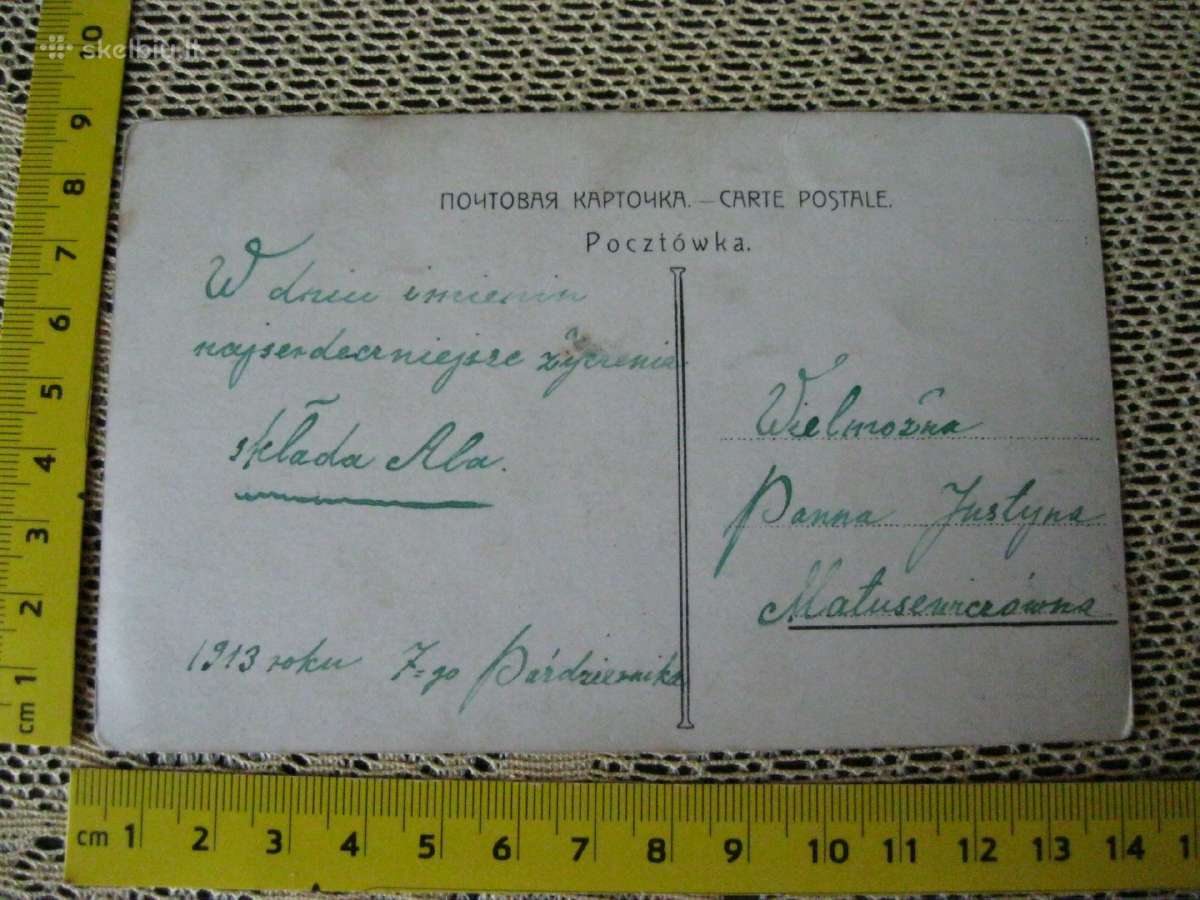 skelbiu.lt
ПОЧТОВАЯ КАРТОЧКА. — CARTE POSTALE.
Pocztówka.
W dniu imienin
najserdeczniejsze życzenia
składa Ala.
1913 roku 7=go Października
Wielmożna
Panna Justyna
Matusewiczówna
10
9
8
7
6
5
4
3
2
1
cm
cm 1 2 3 4 5 6 7 8 9 10 11 12 13 14